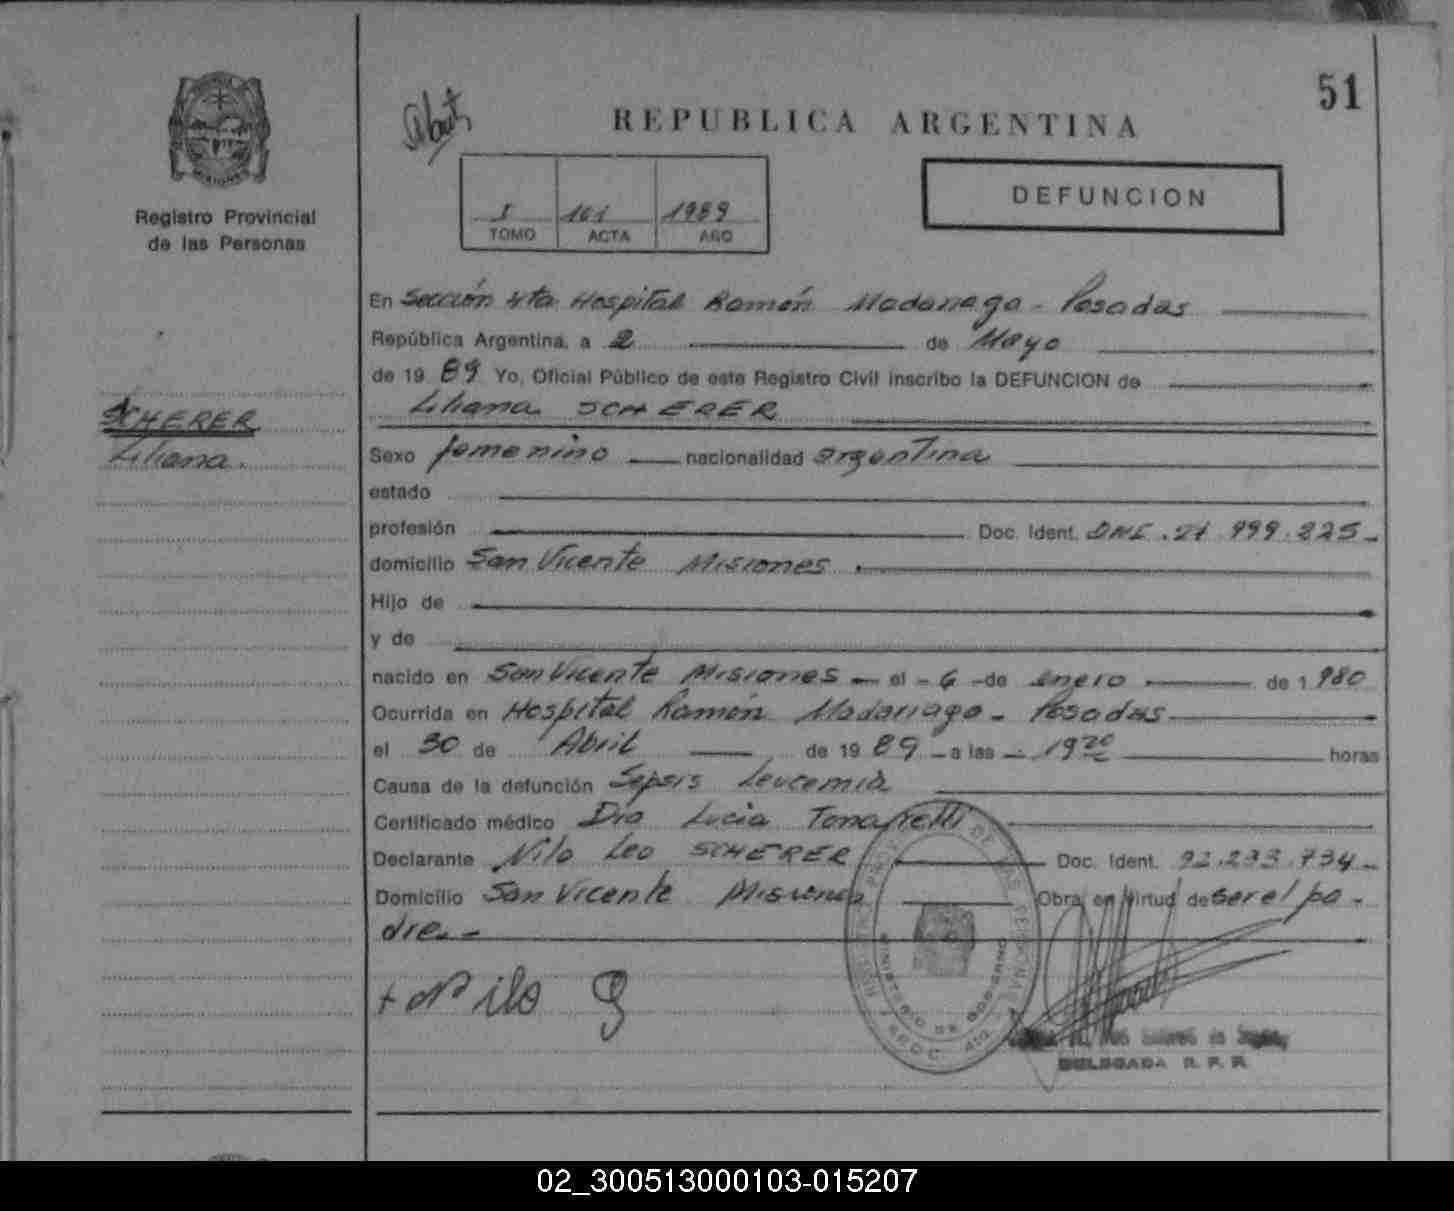 51
REPUBLICA ARGENTINA
Registro Provincial
de las Personas
I 161 1989
TOMO ACTA AÑO
DEFUNCION
En Sección 4ta Hospital Ramón Madariaga - Posadas
República Argentina, a 2 de Mayo
de 19 89 Yo, Oficial Público de este Registro Civil inscribo la DEFUNCION de
Liliana SCHERER
SCHERER
Liliana.
Sexo femenino nacionalidad argentina
estado
profesión Doc. Ident. DNI. 21 999.225.-
domicilio San Vicente Misiones.
Hijo de
y de
nacido en San Vicente Misiones - el - 6 - de enero de 1 980
Ocurrida en Hospital Ramón Madariaga - Posadas
el 30 de Abril de 19 89 - a las - 19 20 horas
Causa de la defunción Sepsis Leucemia
Certificado médico Dra Lucia
Declarante Nilo Leo SCHERER Doc. Ident. 92.233.734-
Domicilio San Vicente Misiones Obra en virtud de ser el pa-
dre.-
+ Nilo
MINISTERIO DE GOBIERNO
DELEGADA R. P. P.
02_300513000103-015207